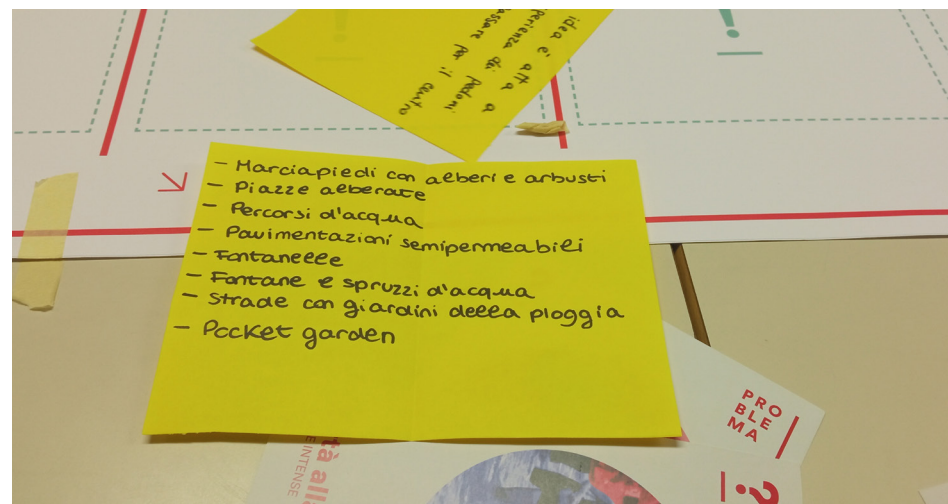 idea è alta a
perienza di pedoni
assare per il centro
- Marciapiedi con alberi e arbusti
- Piazze alberate
- Percorsi d'acqua
- Pavimentazioni semipermeabili
- Fontanelle
- Fontane e spruzzi d'acqua
- Strade con giardini della pioggia
- Pocket garden
PRO
BLE
MA
?
tà all
E INTENSE